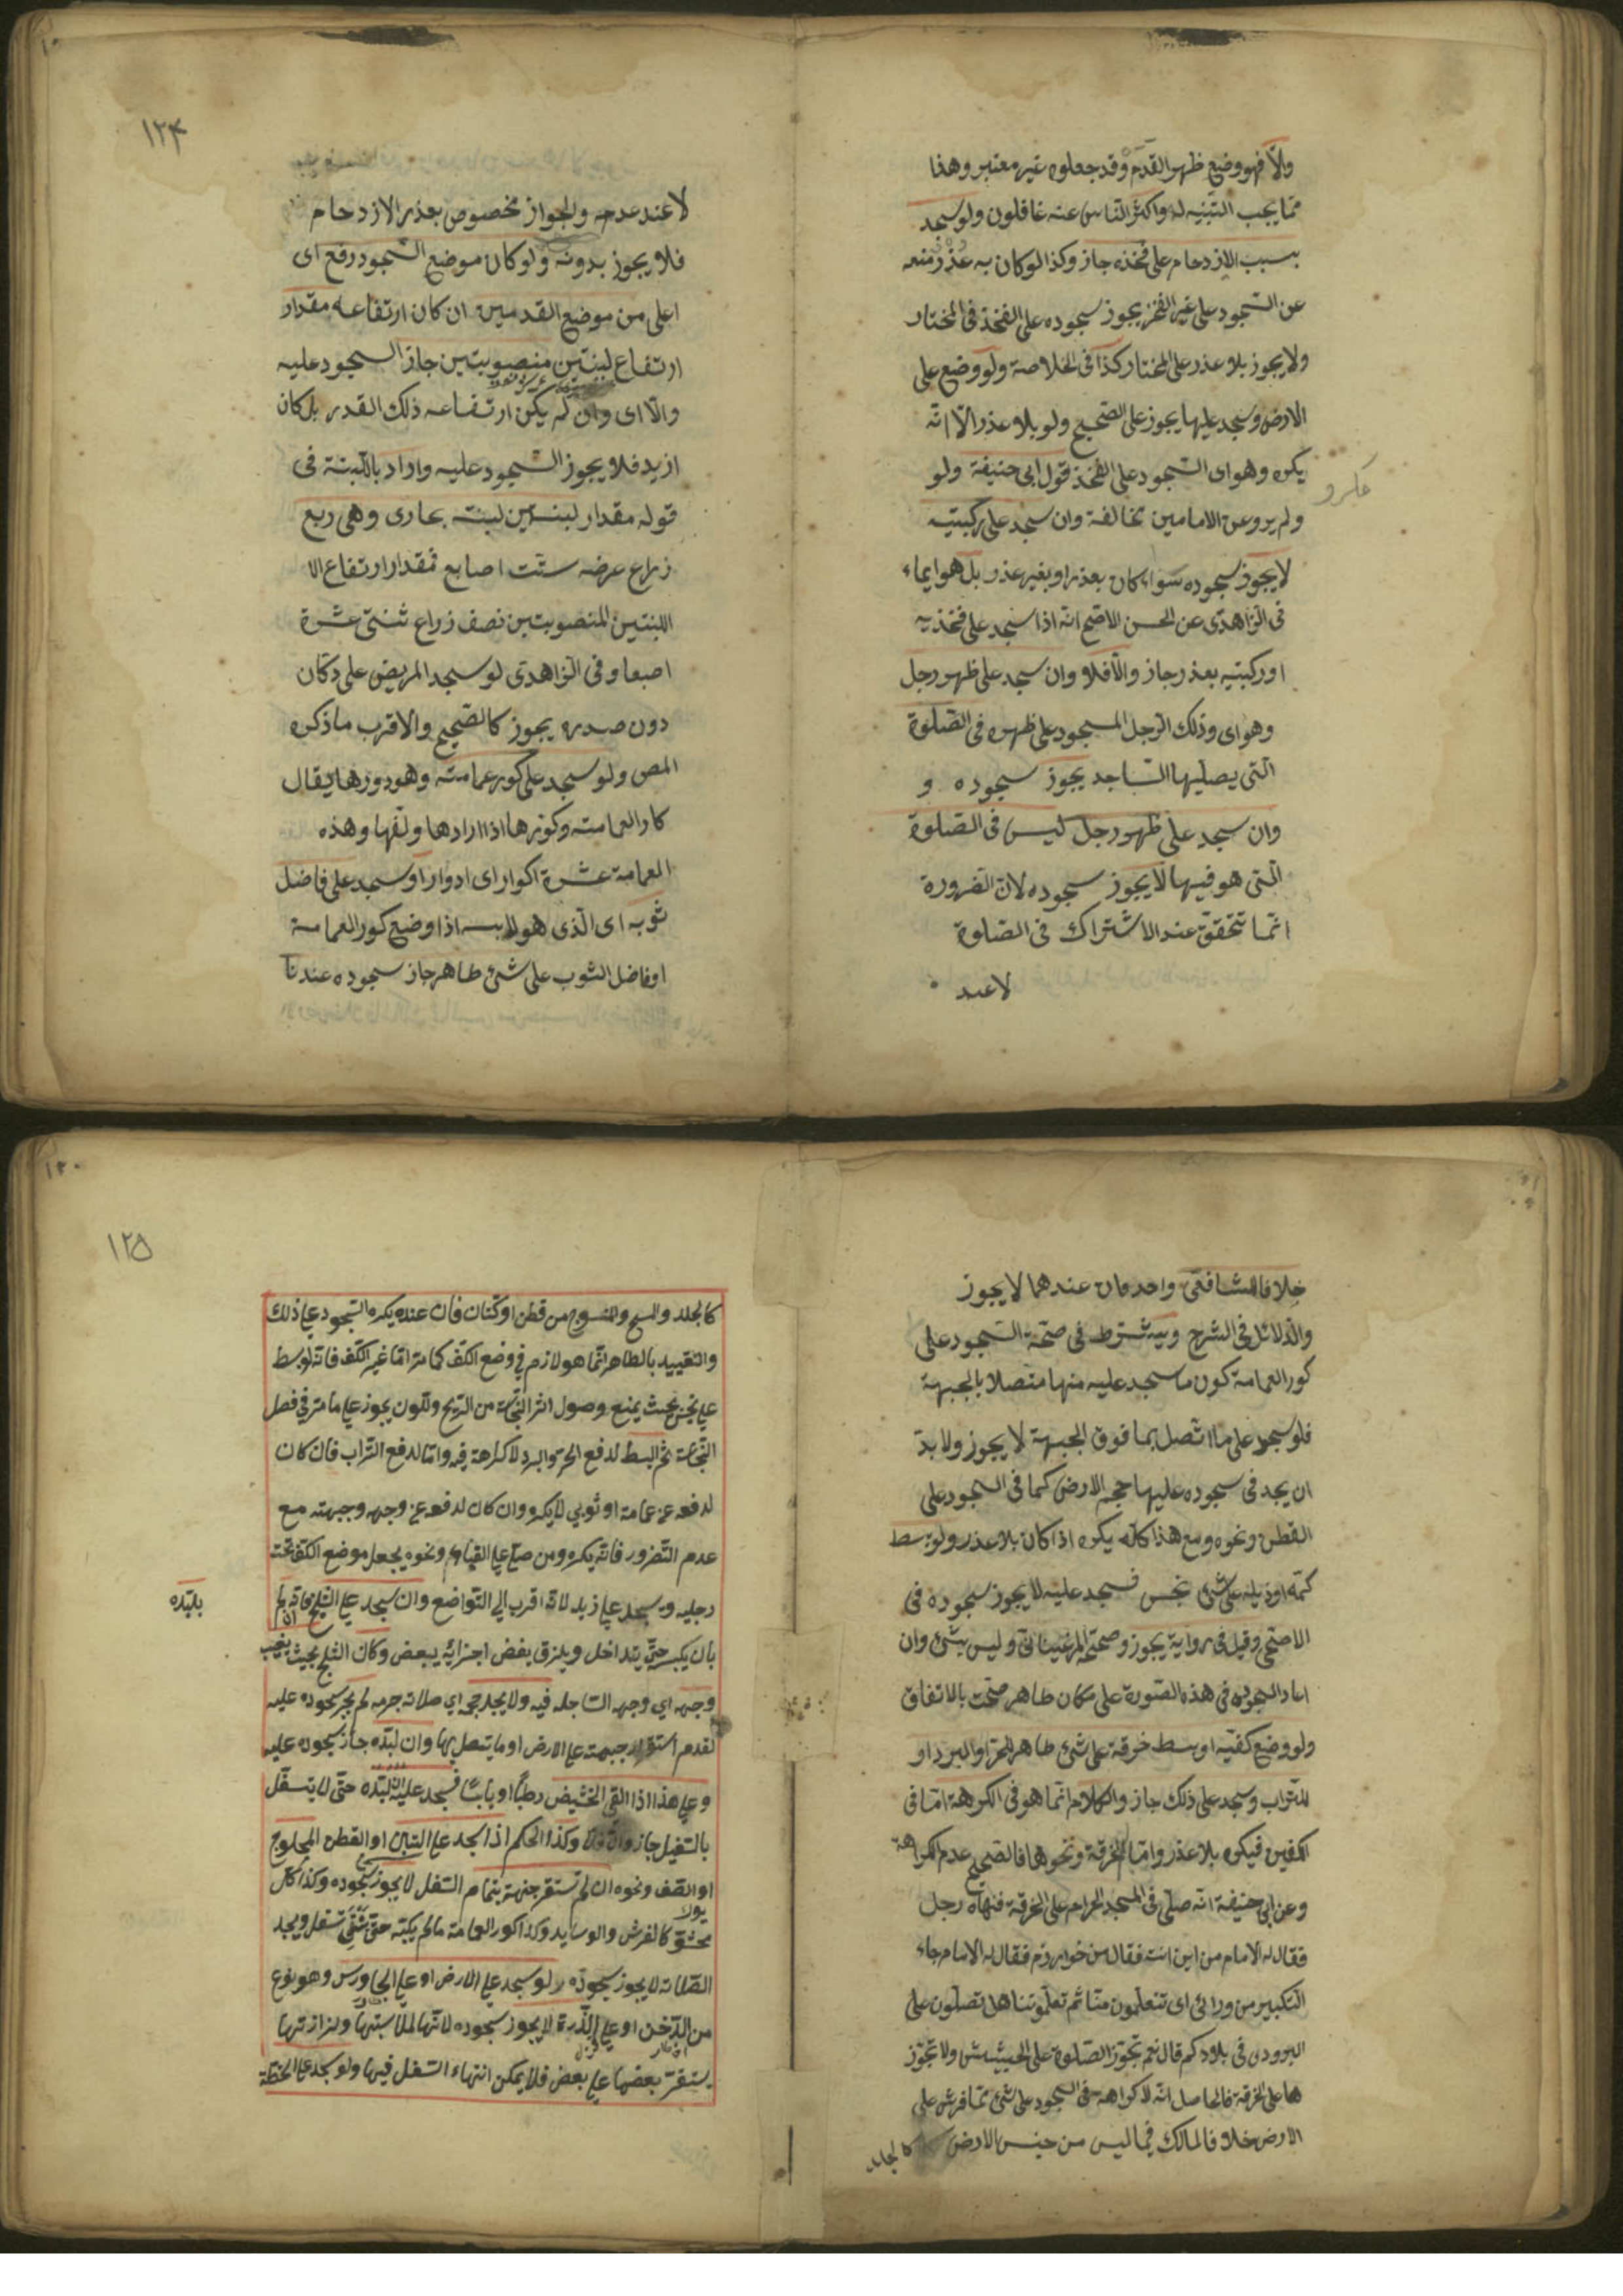 والا فهو وضع ظهر القدم وقد جعلوه غير معتبر وهذا
مما يجب التنبيه له واكثر الناس عنه غافلون ولو سجد
بسبب الازدحام على فخذه جاز وكذا لو كان به عذر منعه
عن السجود على غير الفخذ يجوز سجوده على الفخذ فى المختار
ولا يجوز بلا عذر على المختار كذا فى الخلاصة ولو وضع على
الارض وسجد عليها يجوز على الصحيح ولو بلا عذر الا انه
يكره وهو اى السجود على الفخذ قول ابى حنيفة ولو
ولم يرو عن الامامين مخالفة وان سجد على ركبتيه
لا يجوز سجوده سواء كان بعذر او بغير عذر بل هو ايماء
فى الزاهدى عن الحسن الاصح انه اذا سجد على فخذيه
او ركبتيه بعذر جاز والا فلا وان سجد على ظهر رجل
وهو اى وذلك الرجل المسجود على ظهره فى الصلوة
التى يصليها الساجد يجوز سجوده و
وان سجد على ظهر رجل ليس فى الصلوة
التى هو فيها لا يجوز سجوده لان الضرورة
انما تتحقق عند الاشتراك فى الصلوة
لا عند
١٢٤
لا عند عدمه والجواز مخصوص بعذر الازدحام
فلا يجوز بدونه ولو كان موضع السجود رفع اى
اعلى من موضع القدمين ان كان ارتفاعه مقدار
ارتفاع لبنتين منصوبتين جاز السجود عليه
والا اى وان لم يكن ارتفاعه ذلك القدر بل كان
ازيد فلا يجوز السجود عليه واراد باللبنة فى
قوله مقدار لبنتين لبنة بخارى وهى ربع
زراع عرضه ستت اصابع فمقدار ارتفاع الا
اللبنتين المنصوبتين نصف زراع ثنتى عشرة
اصبعا وفى الزاهدى لو سجد المريض على دكان
دون صدره يجوز كالصحيح والاقرب ما ذكره
المص ولو سجد على كور عمامته وهو دورها يقال
كار العمامته وكورها اذا ارادها ولفها وهذه
العمامة عشرة اكوار اى ادوار او سجد على فاضل
ثوبه اى الذى هو لابسه اذا وضع كور العمامة
او فاضل الثوب على شئ طاهر جاز سجوده عندنا
خلافا للشافعى واحد فان عندهما لا يجوز
والدلائل فى الشرح وبيه شترط فى صحة السجود على
كور العمامة كون ما سجد عليه منها متصلا بالجبهة
فلو سجد على ما اتصل بما فوق الجبهة لا يجوز ولا بد
ان يجد فى سجوده عليها حجم الارض كما فى السجود على
القطن ونحوه ومع هذا كله يكره اذا كان بلا عذر ولو بسط
كمه او ذيله على شئ نجس فسجد عليه لا يجوز سجوده فى
الاصح وقيل فى رواية يجوز وصححه المرغينانى وليس بشئ وان
اعاد السجود فى هذه الصورة على مكان طاهر صحت بالاتفاق
ولو وضع كفيه او بسط خرقة على شئ طاهر للحر او البرد او
للتراب وسجد على ذلك جاز والكلام انما هو فى الكرهة اما فى
الكفين فيكره بلا عذر واما الخرقة ونحوها فالصحيح عدم الكراهة
وعن ابى حنيفة انه صلى فى المسجد الحرام على الخرقة فنهاه رجل
فقال له الامام من اين انت فقال من خوارزم فقال له الامام جاء
التكبير من ورائى اى تتعلمون منا ثم تعلموننا هل تصلون على
البرودى فى بلادكم قال نعم تجوز الصلوة على الحشيش ولا تجوز
ها على الخرقة فالحاصل انه لا كراهة فى السجود على شئ مما فرش على
الارض خلافا لمالك فيما ليس من جنس الارض كالجلد
١٢٥
كالجلد والمسح والمنسوج من قطن او كتان فان عنده يكره السجود على ذلك
والتقييد بالطاهر انما هو لازم فى وضع الكف كما مر اما غير الكف فانه لو بسط
على نجس بحيث يمنع وصول اثر النجاسة من الريح واللون يجوز على ما مر فى فصل
النجاسة ثم البسط لدفع الحر والبرد لا كراهة فيه واما لدفع التراب فان كان
لدفعه عن عمامة او ثوبى لا يكره وان كان لدفعه عن وجهه وجبهته مع
عدم التضرر فانه يكره ومن صلى على القباء ونحوه يجعل موضع الكتف تحت
رجليه ويسجد على ذيله لانه اقرب الى التواضع وان سجد على الثلج فانه ان لم
يلبّده
بان يكبس حتى يتداخل ويلزق بعض اجزائه ببعض وكان الثلج بحيث يغيب
وجهه اى وجه الساجد فيه ولا يجد حجمه اى صلابة جرمه لم يجز سجوده عليه
لعدم استقرار جبهته على الارض او ما يتصل بها وان لبده جاز سجوده عليه
وعلى هذا اذا القى الحشيش رطبا او يابسا فسجد عليه ان لبده حتى لا يتسفل
بالتسفيل جاز والا فلا وكذا الحكم اذا سجد على التبن او القطن المحلوج
او الصوف ونحوه ان لم تستقر جبهته بتمام التسفل لا يجوز سجوده وكذا كل
محشو كالفرش والوسايد وكذا كور العمامة ما لم يكبسه حتى تسفل ويجد
الصلابة لا يجوز سجوده ولو سجد على الارض او على الجاورس وهو نوع
من الدخن او على الذرة لا يجوز سجوده لانها لملاستها ولزازتها
يستقر بعضها على بعض فلا يمكن انتهاء التسفل فيها ولو سجد على الحنطة